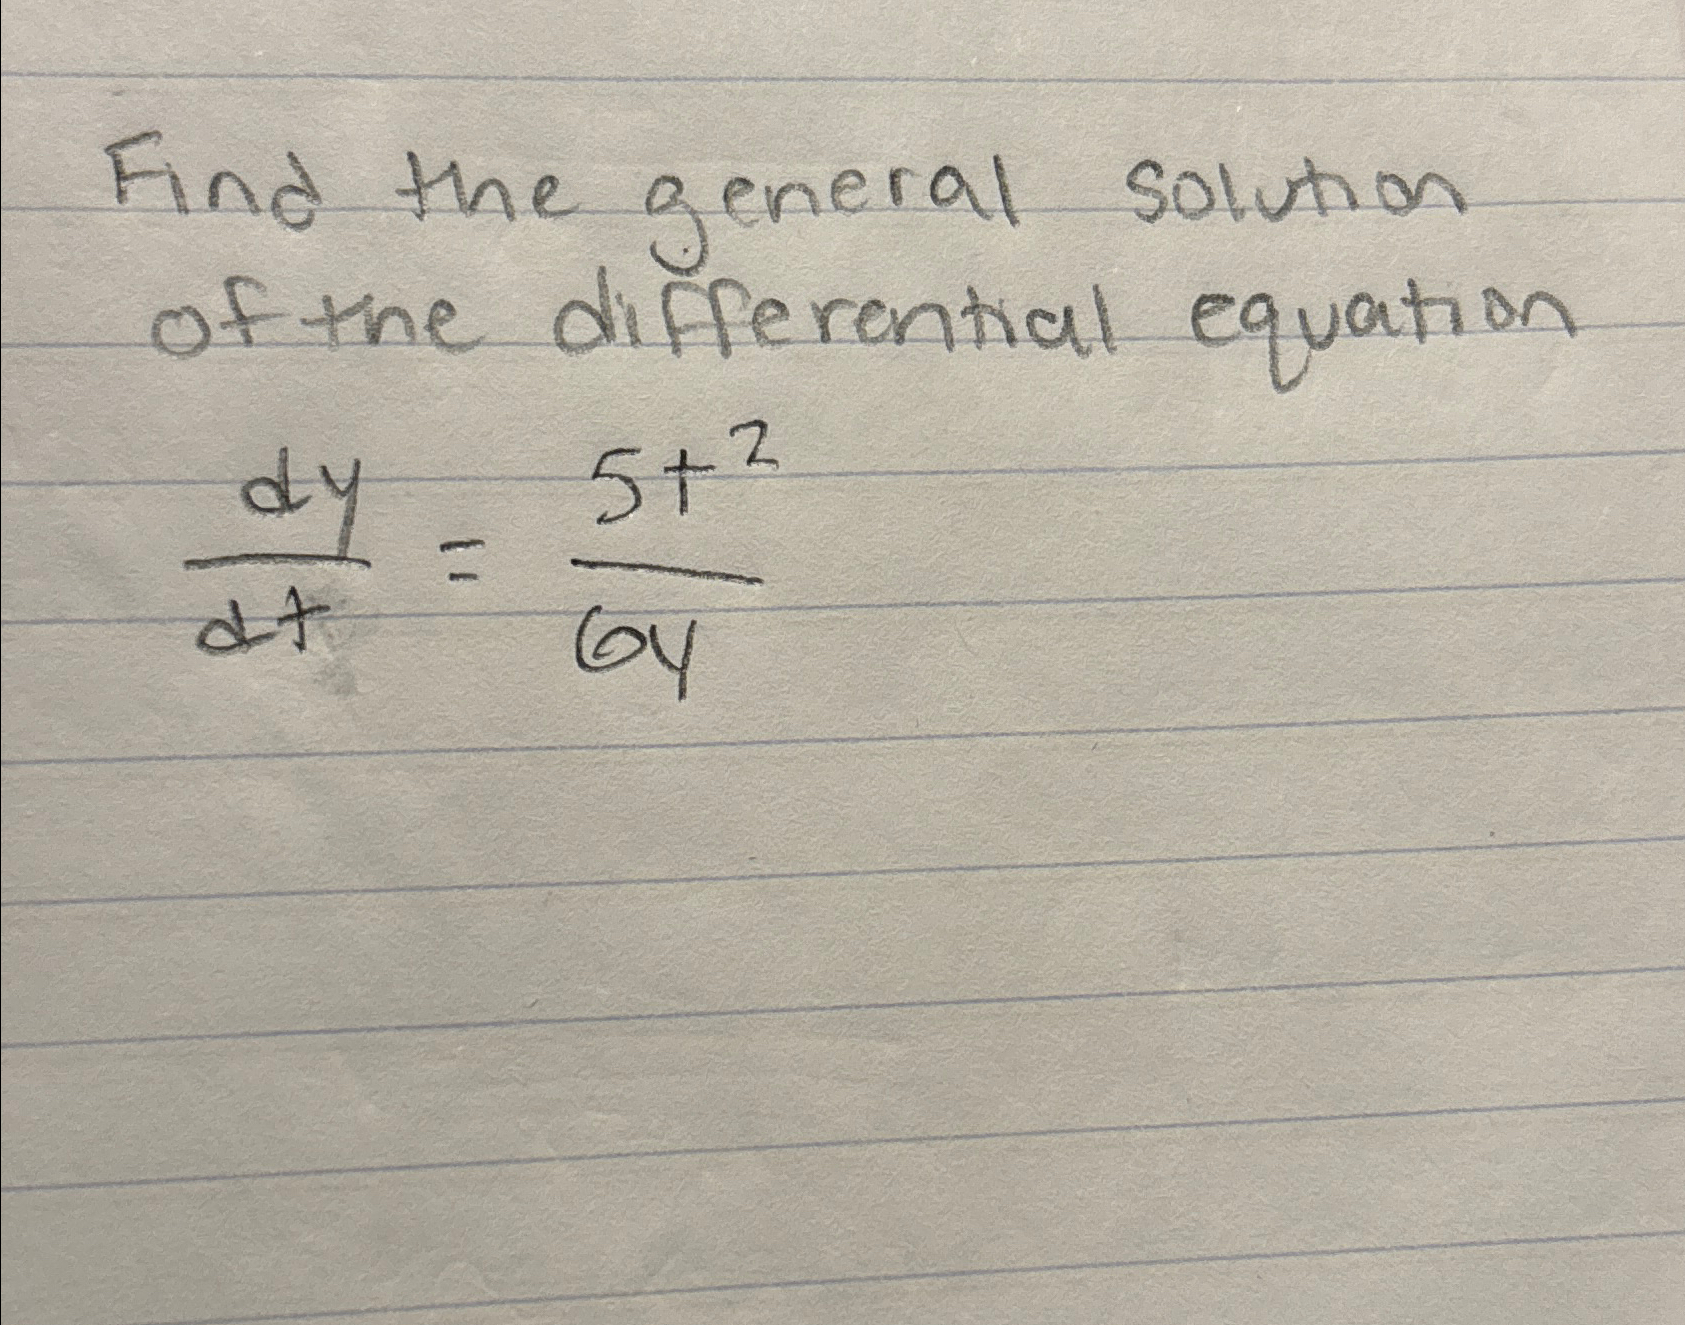 Find the general solution
of the differential equation
dy/dt = 5t²/6y